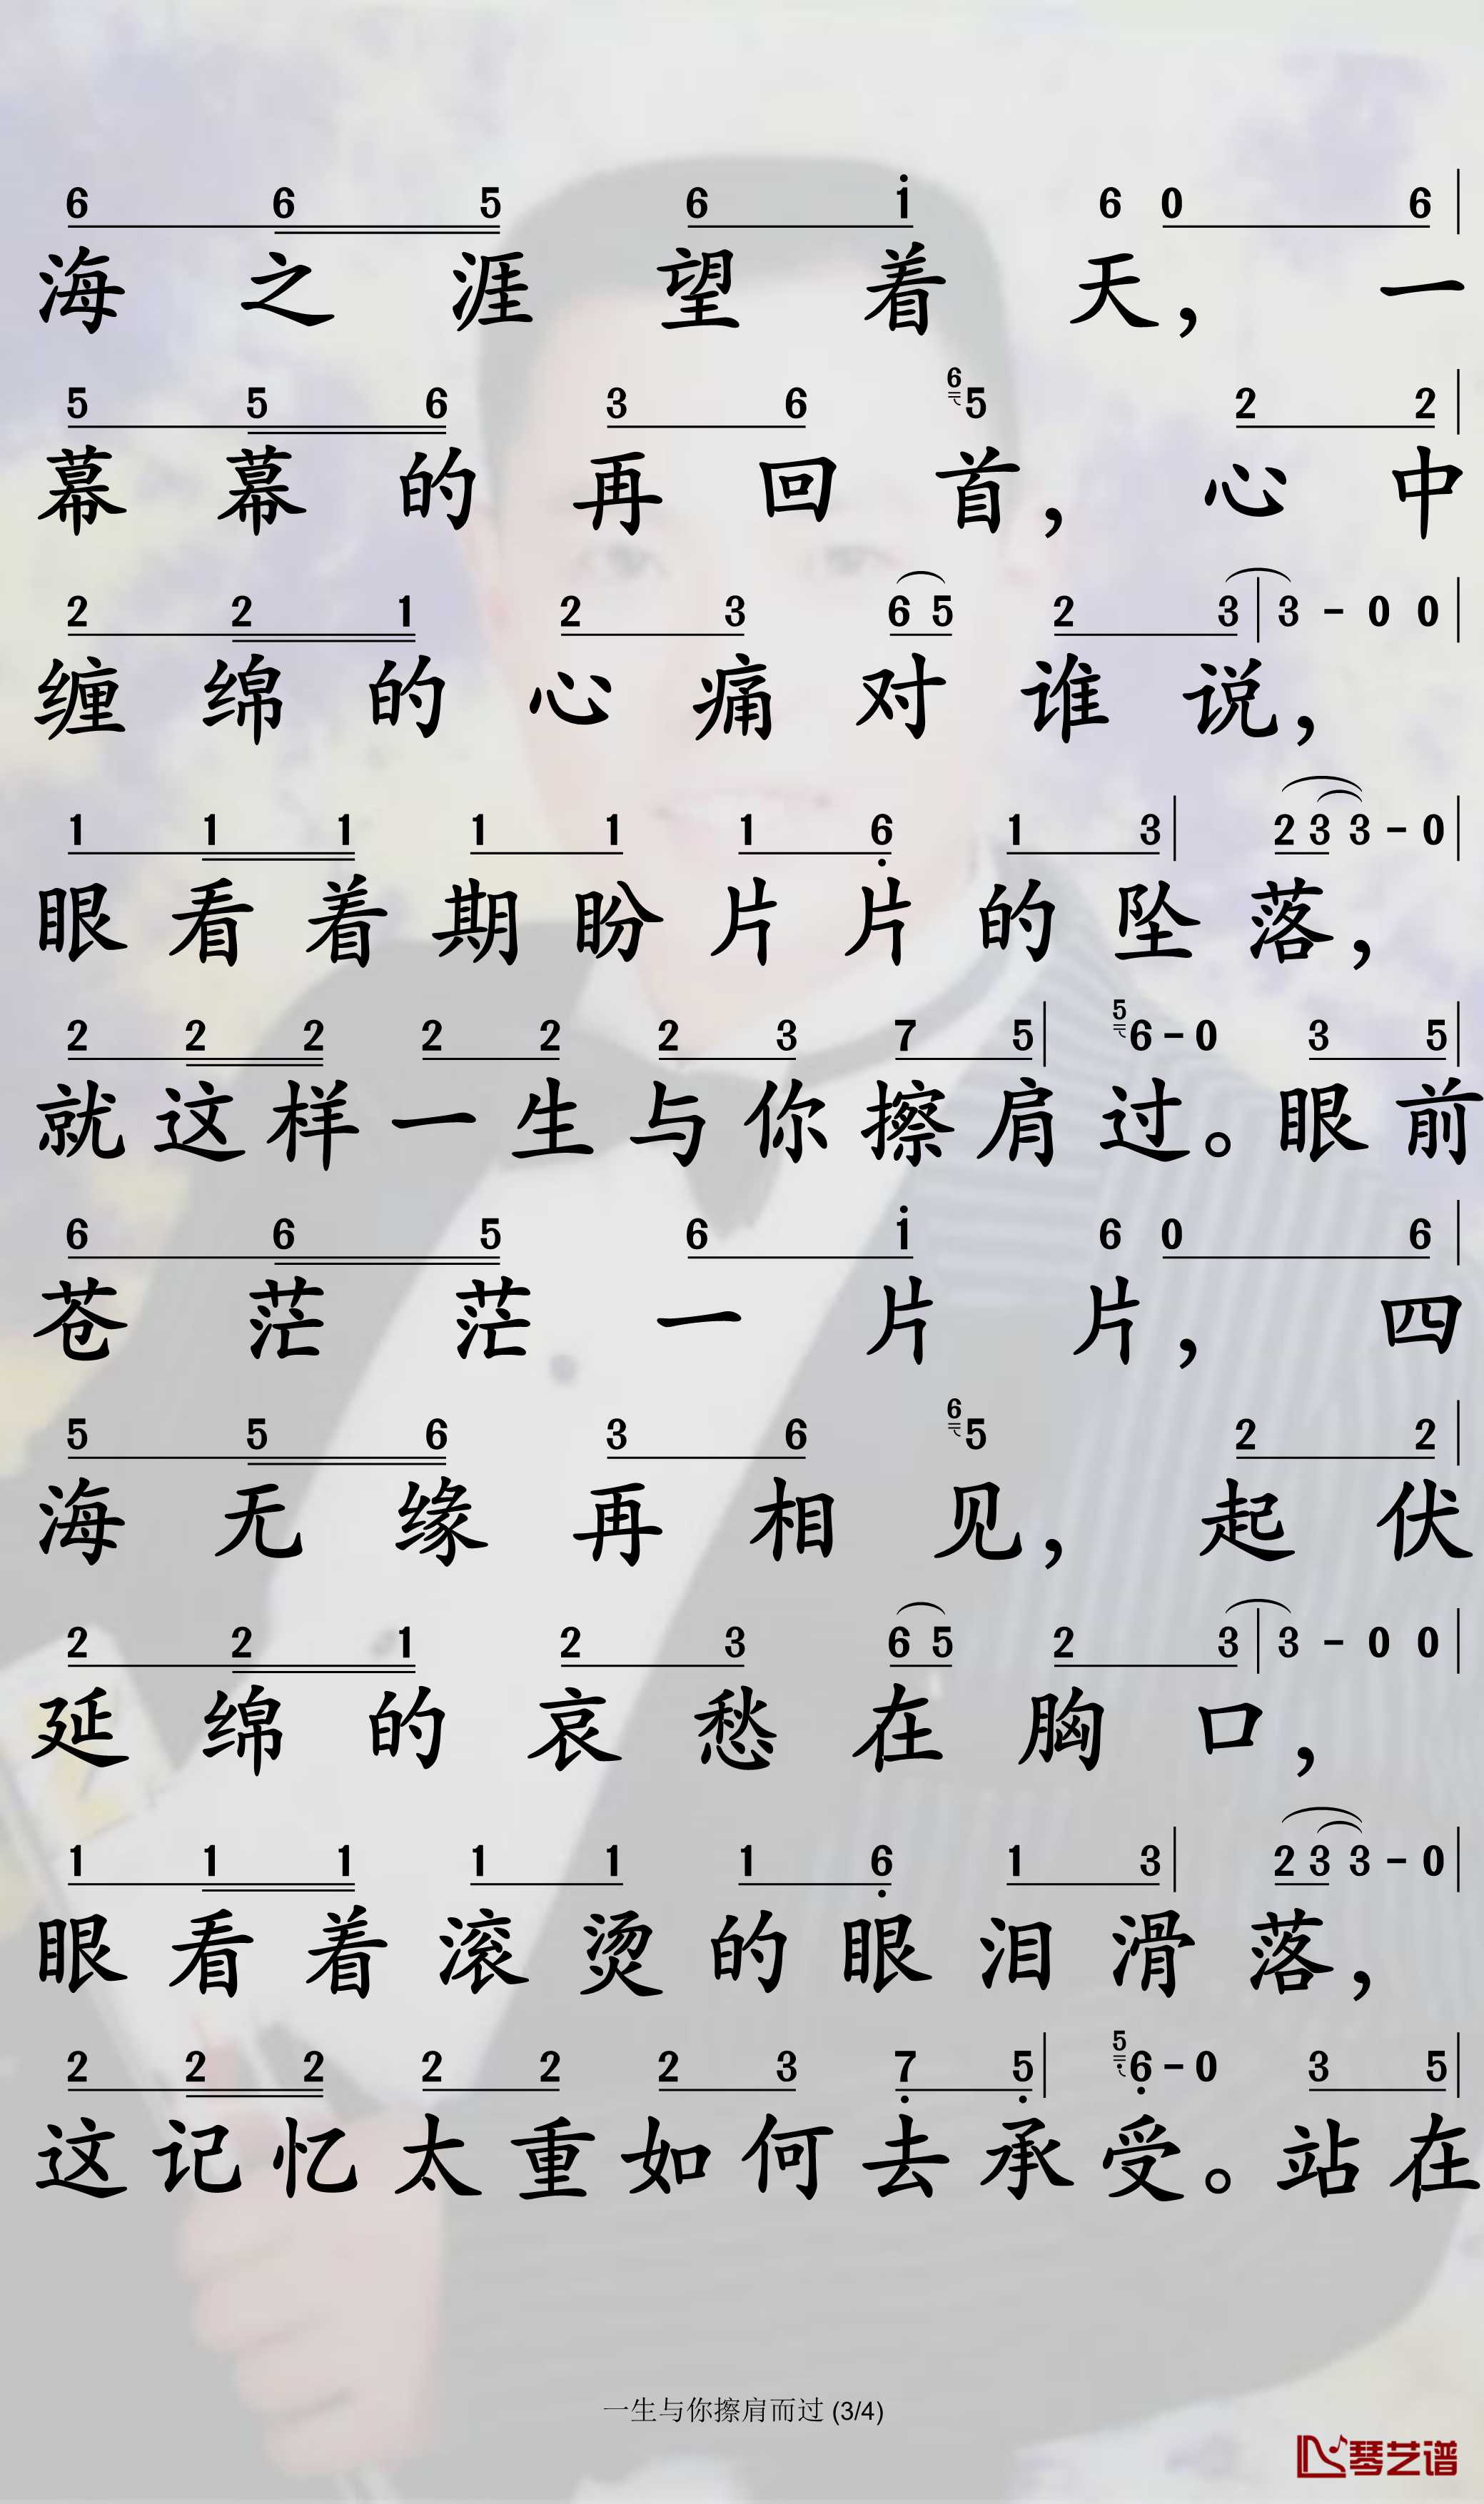 6 6 5 6 i 6 0 6
海之涯望着天，一
5 5 6 3 6 6 5 2 2
幕幕的再回首，心中
2 2 1 2 3 6 5 2 3 3 - 0 0
缠绵的心痛对谁说，
1 1 1 1 1 1 6 1 3 2 3 3 - 0
眼看着期盼片片的坠落，
2 2 2 2 2 2 3 7 5 5 6 - 0 3 5
就这样一生与你擦肩过。眼前
6 6 5 6 i 6 0 6
苍茫茫一片片，四
5 5 6 3 6 6 5 2 2
海无缘再相见，起伏
2 2 1 2 3 6 5 2 3 3 - 0 0
延绵的哀愁在胸口，
1 1 1 1 1 1 6 1 3 2 3 3 - 0
眼看着滚烫的眼泪滑落，
2 2 2 2 2 2 3 7 5 5 6 - 0 3 5
这记忆太重如何去承受。站在
一生与你擦肩而过 (3/4)
琴艺谱